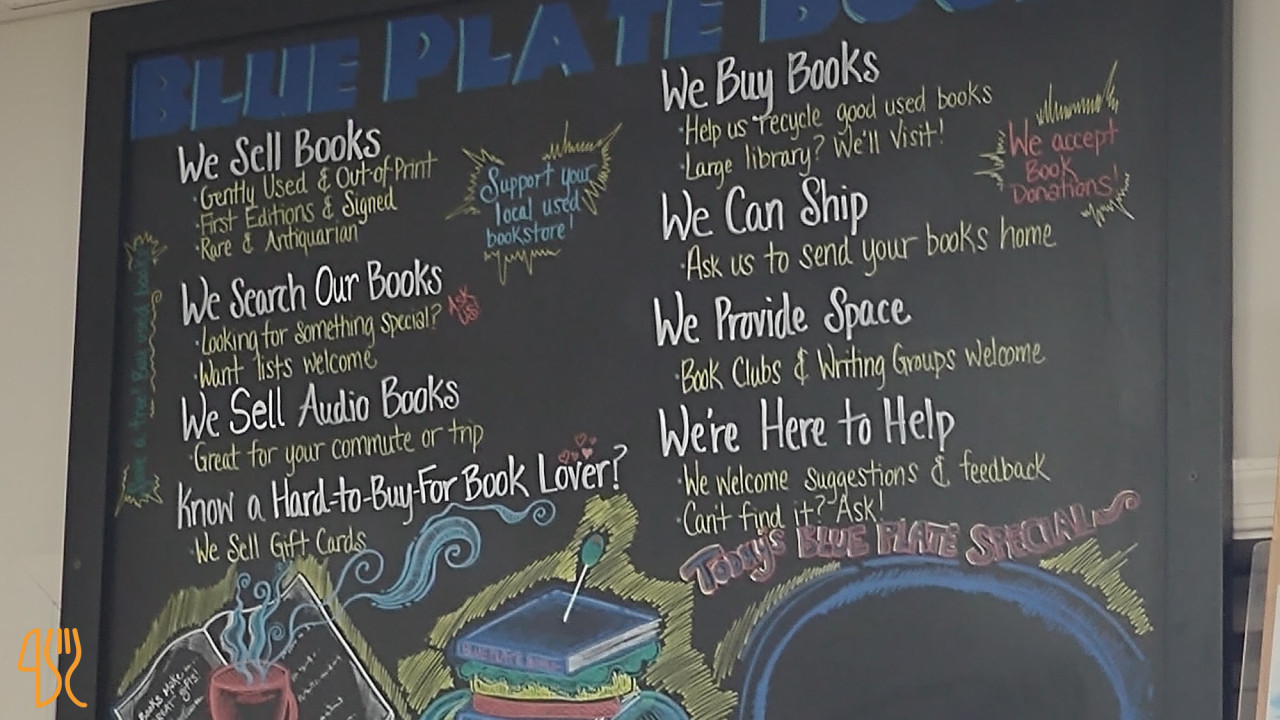 BLUE PLATE
We Sell Books
·Gently Used & Out-of-Print
·First Editions & Signed
·Rare & Antiquarian
Support your
local used
bookstore!
We Search Our Books
Ask
Us
·Looking for something special?
·Want lists welcome
We Sell Audio Books
·Great for your commute or trip
Know a Hard-to-Buy-For Book Lover?
·We Sell Gift Cards
We Buy Books
·Help us recycle good used books
·Large library? We'll Visit!
We accept
Book
Donations!
We Can Ship
·Ask us to send your books home
We Provide Space
·Book Clubs & Writing Groups Welcome
We're Here to Help
·We welcome suggestions & feedback
·Can't find it? Ask!
Today's BLUE PLATE SPECIAL
Books Make
great gifts!
BLUE PLATE